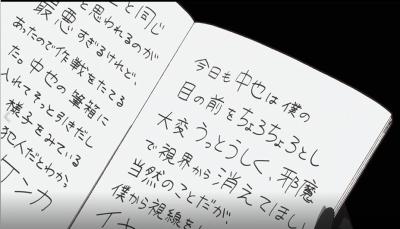 こと同じ
と思われるのが
最悪すぎるけれど、
あったので作戦をたてる
た。中也の筆箱に
入れてそっと引きだし
様子をみている
犯人だとわかっ
ケンカ
今日も中也は僕の
目の前をちょろちょろとし
大変うっとうしく、邪魔
で視界から消えてほしい
当然のことだが、
僕から視線を
イヤ